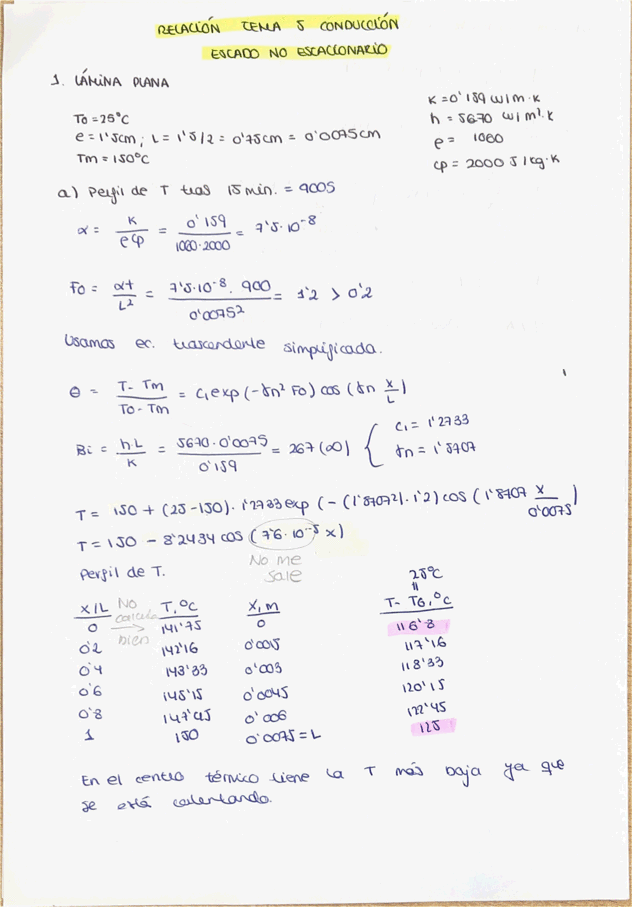 RELACIÓN TEMA 5 CONDUCCIÓN
ESTADO NO ESTACIONARIO
1. LÁMINA PLANA
To = 25°C
e = 1'5cm; L = 1'5/2 = 0'75cm = 0'0075cm
Tm = 150°C
K = 0'159 W/m·K
h = 5670 W/m²·K
ρ = 1060
cp = 2000 J/kg·K
a) Perfil de T tras 15 min. = 900s
α = K/ρCp = 0'159/1060·2000 = 7'5·10⁻⁸
Fo = αt/L² = 7'5·10⁻⁸·900/0'0075² = 1'2 > 0'2
Usamos ec. trascendente simplificada.
θ = T-Tm/To-Tm = C₁exp(-δn² Fo) cos(δn x/L)
Bi = h·L/K = 5670·0'0075/0'159 = 267 (∞) { C₁ = 1'2733
δn = 1'5707
T = 150 + (25-150)·1'2733 exp(-(1'5707²)·1'2) cos(1'5707 x/0'0075)
T = 150 - 8'2434 cos(7'6·10⁻⁵ x)
No me sale
Perfil de T.
25°C
=
X/L T,°C X,m T-To,°C
No calcula bien →
0 141'75 0 116'8
0'2 142'16 0'0015 117'16
0'4 143'33 0'003 118'33
0'6 145'15 0'0045 120'15
0'8 147'45 0'006 122'45
1 150 0'0075=L 125
En el centro térmico tiene la T más baja ya que
se está calentando.